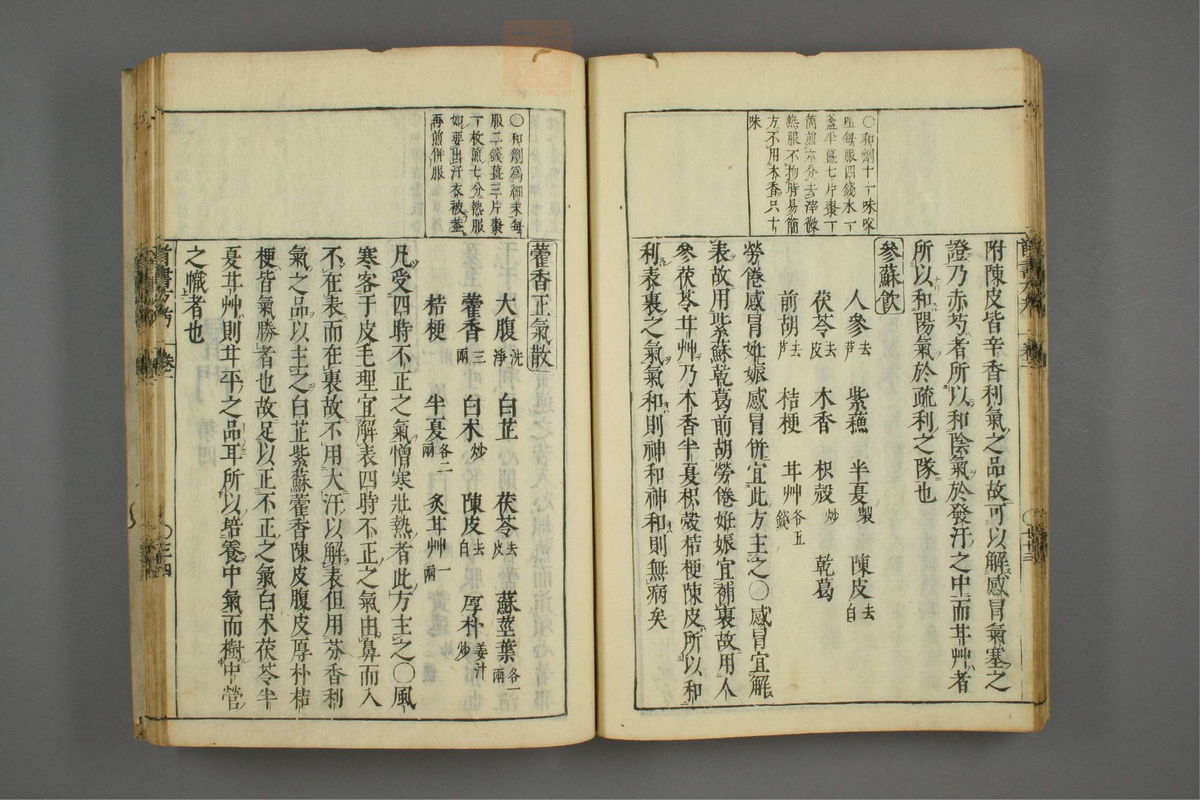 附陳皮皆辛香利氣之品故可以解感冒氣塞之
證乃赤芍者所以和陰氣於發汗之中而甘艸者
所以和陽氣於疏利之隊也
參蘇飲
人參去芦 紫蘓 半夏製 陳皮去白
茯苓去皮 木香 枳殻炒 乾葛
前胡去芦 桔梗 甘艸各五錢
勞倦感冒妊娠感冒併宜此方主之○感冒宜解
表故用紫蘇乾葛前胡勞倦妊娠宜補裏故用人
參茯苓甘艸乃木香半夏枳殻桔梗陳皮所以和
利表裏之氣氣和則神和神和則無病矣
○和劑十一味㕮
咀每服四錢水一
盞半薑七片棗一
箇煎六分去滓微
熱服不拘時易簡
方不用木香只十
味
藿香正氣散
大腹洗淨 白芷 茯苓去皮 蘇莖葉各一兩
藿香三兩 白术炒 陳皮去白 厚朴姜汁炒
桔梗 半夏各二兩 炙甘艸一兩
凡受四時不正之氣憎寒壯熱者此方主之○風
寒客于皮毛理宜解表四時不正之氣由鼻而入
不在表而在裏故不用大汗以解表但用芬香利
氣之品以主之白芷紫蘇藿香陳皮腹皮厚朴桔
梗皆氣勝者也故足以正不正之氣白术茯苓半
夏甘艸則甘平之品耳所以培養中氣而樹中營
之幟者也
○和劑爲細末每
服二錢薑三片棗
一枚煎七分熱服
如要出汗衣被蓋
再煎併服
卷一
○三十四